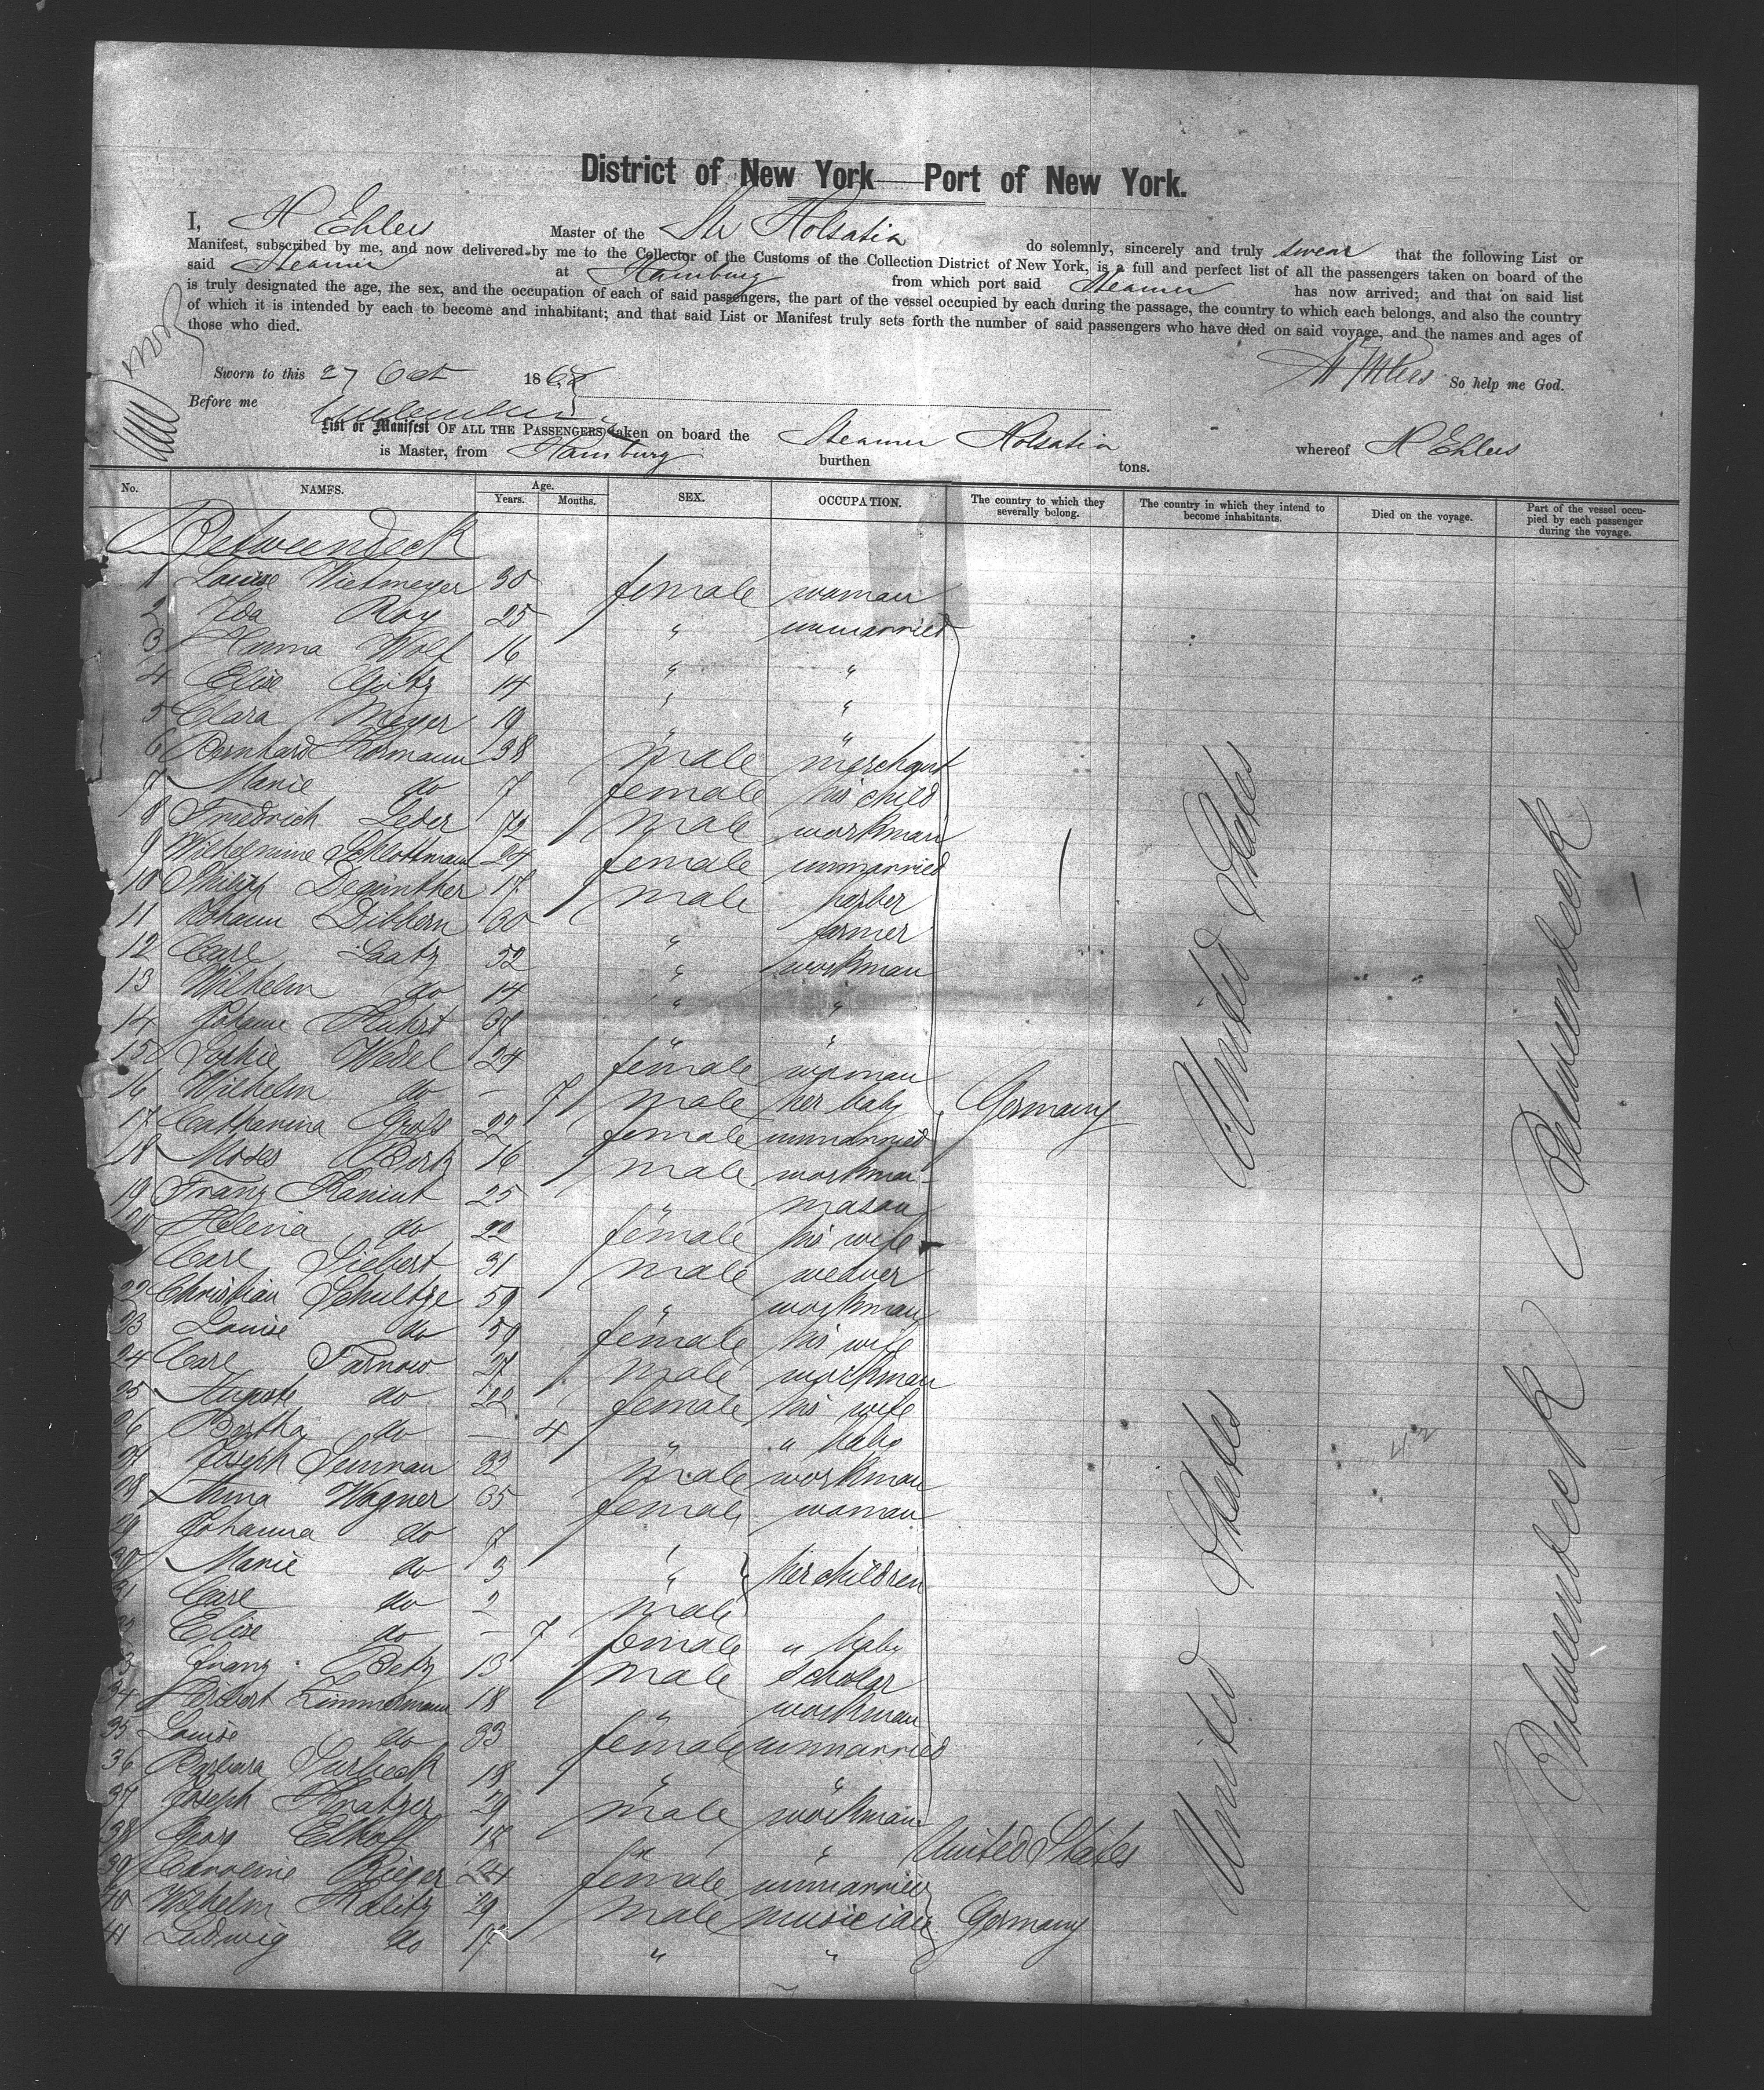 District of New York—Port of New York.
I, H Ehlers Master of the Str Holsatia do solemnly, sincerely and truly swear that the following List or
Manifest, subscribed by me, and now delivered by me to the Collector of the Customs of the Collection District of New York, is a full and perfect list of all the passengers taken on board of the
said Steamer at Hamburg from which port said Steamer has now arrived; and that on said list
is truly designated the age, the sex, and the occupation of each of said passengers, the part of the vessel occupied by each during the passage, the country to which each belongs, and also the country
of which it is intended by each to become and inhabitant; and that said List or Manifest truly sets forth the number of said passengers who have died on said voyage, and the names and ages of
those who died.
H Ehlers So help me God.
Sworn to this 27 Oct 1868
Before me
List or Manifest OF ALL THE PASSENGERS taken on board the Steamer Holsatia whereof H Ehlers
is Master, from Hamburg burthen tons.
No. NAMES. Age. Years. Months. SEX. OCCUPATION. The country to which they severally belong. The country in which they intend to become inhabitants. Died on the voyage. Part of the vessel occupied by each passenger during the voyage.
Betweendeck
1 Louise Wietmeyer 30 female woman
2 Ida Roy 25 " unmarried
3 Hanna Wolf 16 " "
4 Elise Götz 14 " "
5 Clara Meyer 19 " "
6 Bernhard Hormann 38 male merchant
7 Marie do 7 female his child
8 Friedrich Leder 72 male workman
9 Wilhelmine Schlottmann 24 female unmarried
10 Philipp Degünther 17 male barber
11 Johann Dibbern 30 " farmer
12 Carl Laatz 52 " workman
13 Wilhelm do 14 " "
14 Johann Ruhst 37 " "
15 Sophie Wedel 24 female woman
16 Wilhelm do - 7 male her baby
17 Catharina Gross 22 female unmarried
18 Moses Bertz 16 male workman
19 Franz Kaniut 25 " mason
20 Helena do 22 female his wife
Carl Siebert 31 male weaver
22 Christian Schultze 59 " workman
23 Louise do 59 female his wife
24 Carl Tarnow 27 male workman
25 Auguste do 22 female his wife
26 Bertha do - 4 " " baby
27 Joseph Seuman 32 male workman
28 Anna Wagner 35 female woman
29 Johanna do 7 "
30 Marie do 3 " her children
31 Carl do 2 male
32 Elise do - 7 female " baby
33 Franz Betz 13 male scholar
34 Heribert Zimmermann 18 " workman
35 Louise do 33 female unmarried
36 Barbara Surbeck 18 " "
37 Joseph Knatzer 29 male workman
38 Georg Elhoff 17 " " United States
39 Caroline Rieger 24 female unmarried
40 Wilhelm Kalitz 29 male musician Germany
41 Ludwig do 17 " "
Germany
United States
United States
Betweendeck
Betweendeck